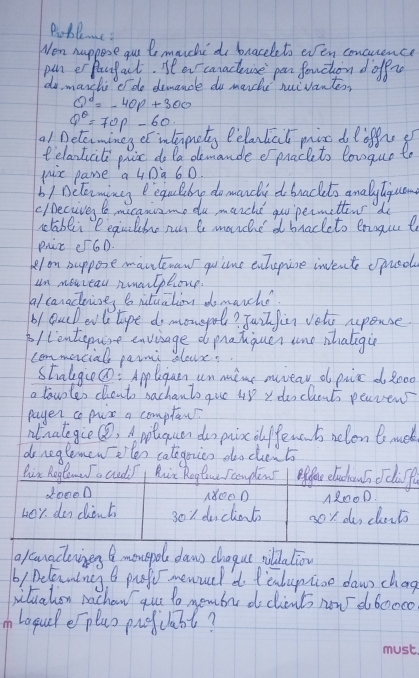 Problème:
Non suppose que le marché de bracelets est en concurrence
pur et parfait. Il est caractérisé par fonction d'offre
du marché et de demande du marché suivantes
Qd = -40p + 300
Qo = 70p - 60
a/ Determinez et interpretez l'élasticité prix de l'offre et
l'élasticité prix de la demande de braclets lorsque le
prix passe a 4D à 6D.
b/ Determinez l'équilibre de marché de braclets analytiqueme
c/ Decrivez le micanisme du marché qui permettent de
rétablir l'équilibre sur le marché de braclets lorsque le
prix est 6D.
on suppose maintenant qu'une entreprise invente et produi
un nouveau smartphone.
a/ caracterisez la situation de marché.
b/ Quel est le type de monopole? Justifier votre reponse.
3/ L'entreprise envisage de pratiquer une stratégie
commerciale parmi deux:
Strategie ①: Appliquer un même niveau de prix de 2000
a tous les clients sachants que 45% des clients peuvent
payer ce prix a comptant
strategie ②: Appliquer des prix différents selon le mode
de reglement et les catégories des clients
Prix Reglement a credit | Prix Reglement comptant | Offre etudiants
2000D | 1800D | 1200D.
40% des clients | 30% des clients | 30% des clients
a/ caracterisez le monopole dans chaque situation
b/ Determinez le profit mensuel de l'entreprise dans chaq
situation sachant que le nombre de clients
laquel est plus profitable?
must.